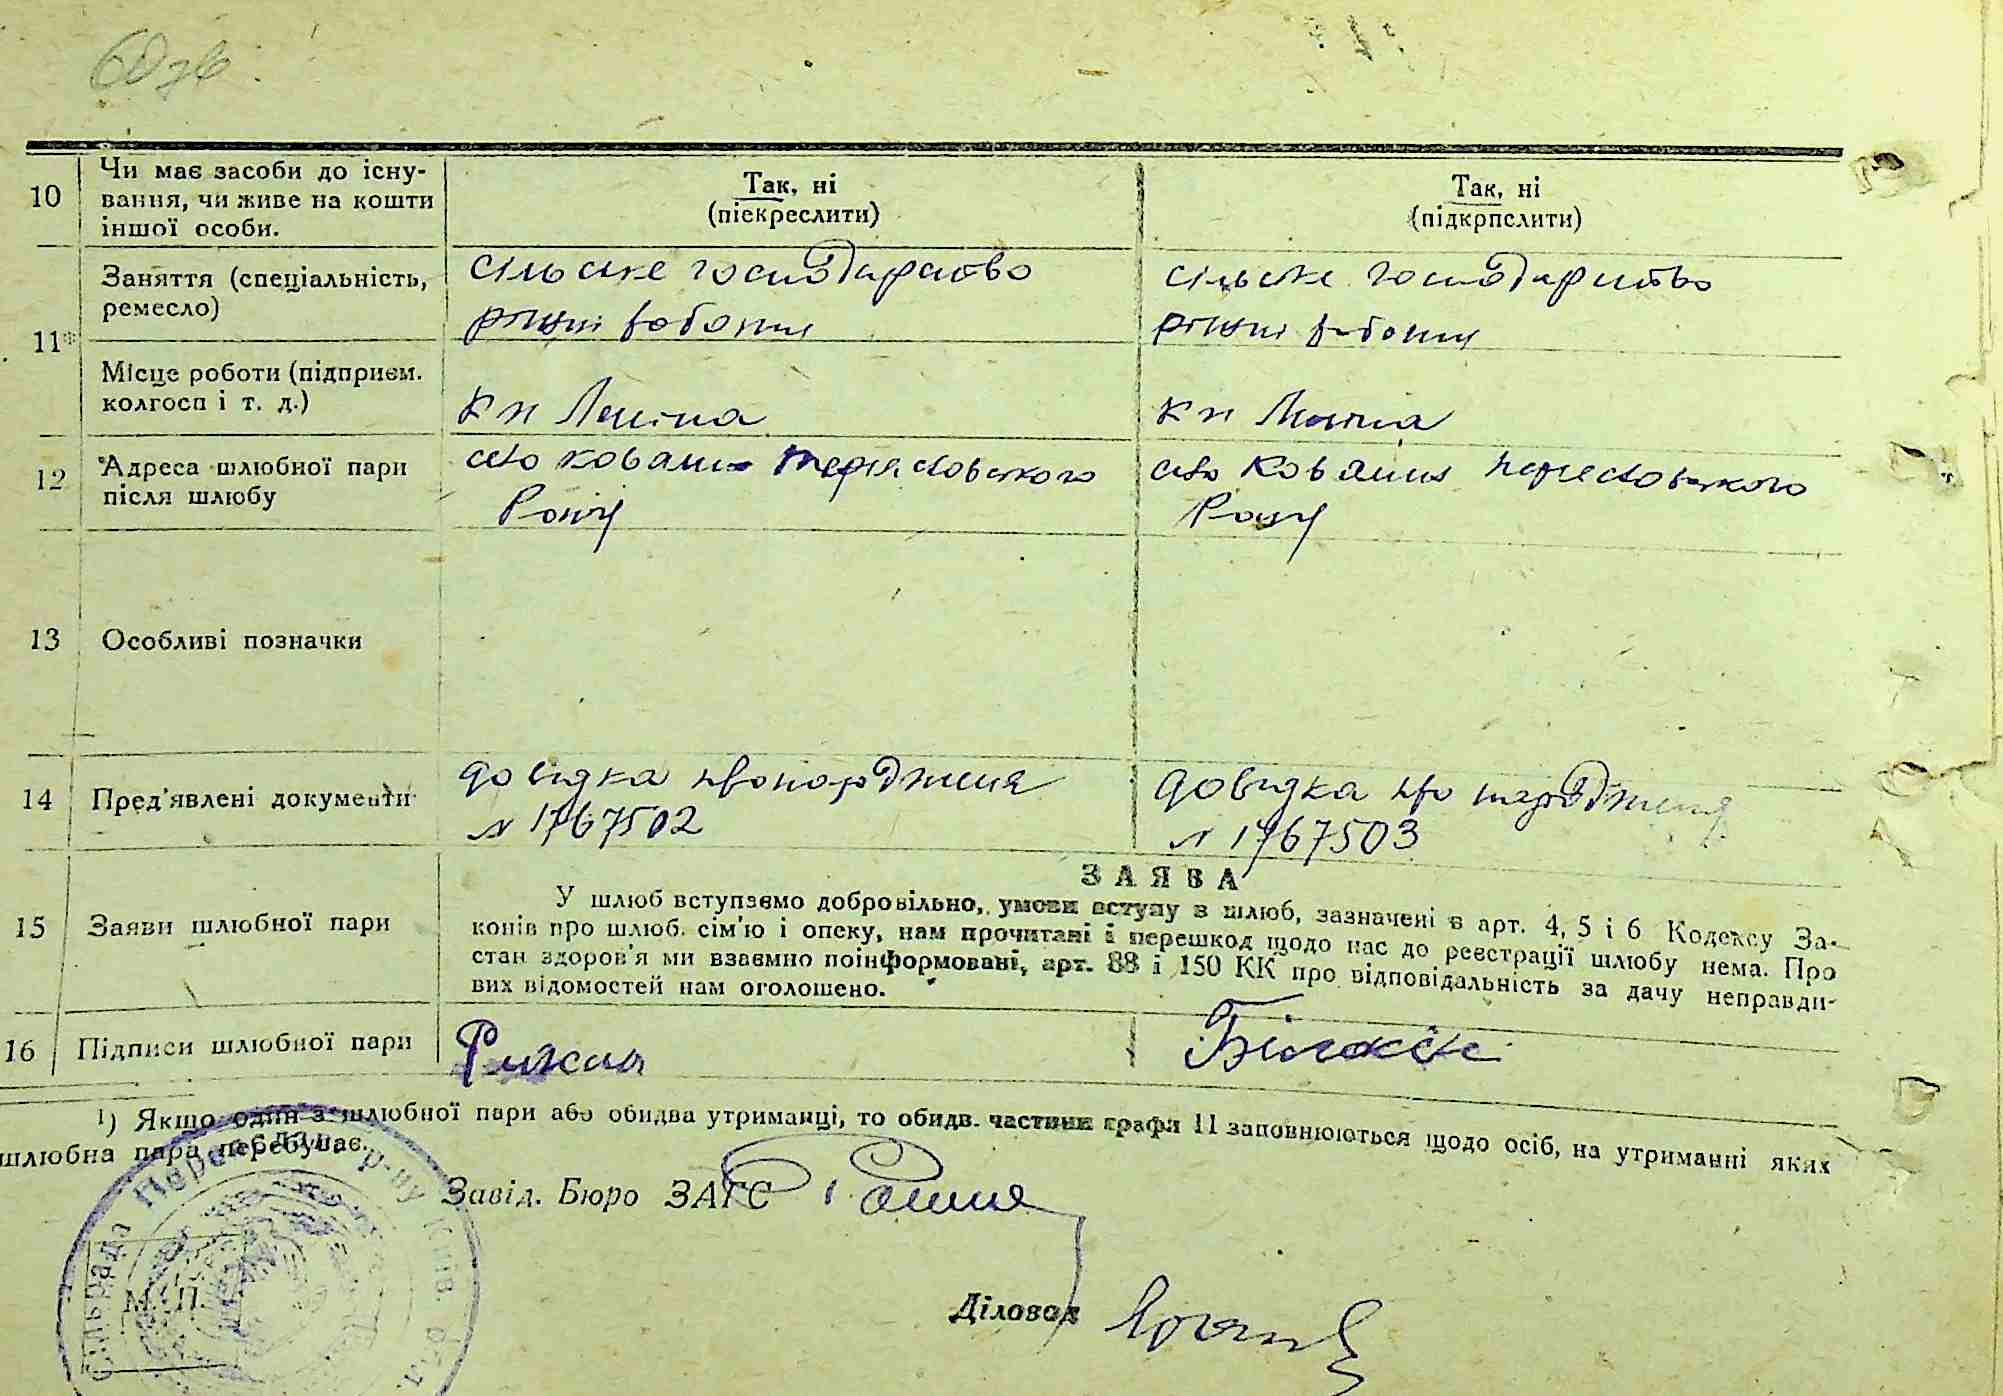 60 зв
10 Чи має засоби до існу-
вання, чи живе на кошти
іншої особи.
Так, ні
(піекреслити)
Так, ні
(підкрпслити)
11* Заняття (спеціальність,
ремесло)
сільське господарство
різні роботи
сільське господарство
різні роботи
Місце роботи (підприєм.
колгосп і т. д.)
к п Леніна
к п Леніна
12 Адреса шлюбної пари
після шлюбу
село Ковалин Переяславського
Рону
село Ковалин Переяславського
Рону
13 Особливі позначки
14 Пред'явлені документи
довідка про народження
№ 1767502
довідка про народження
№ 1767503
15 Заяви шлюбної пари
ЗАЯВА
У шлюб вступаємо добровільно, умови вступу в шлюб, зазначені в арт. 4, 5 і 6 Кодексу За-
конів про шлюб. сім'ю і опску, нам прочитані і перешкод щодо нас до реєстрації шлюбу нема. Про
стан здоров'я ми взаємно поінформовані, арт. 88 і 150 КК про відповідальність за дачу неправди-
вих відомостей нам оголошено.
16 Підписи шлюбної пари
Рижка
Білокінь
¹) Якщо один з шлюбної пари або обидва утриманці, то обидв. частини графи 11 заповнюються щодо осіб, на утриманні яких
шлюбна пара перебуває.
Завід. Бюро ЗАГС
М. П.
Сільрада Переяслав. р-ну Київ. обл.
Діловод